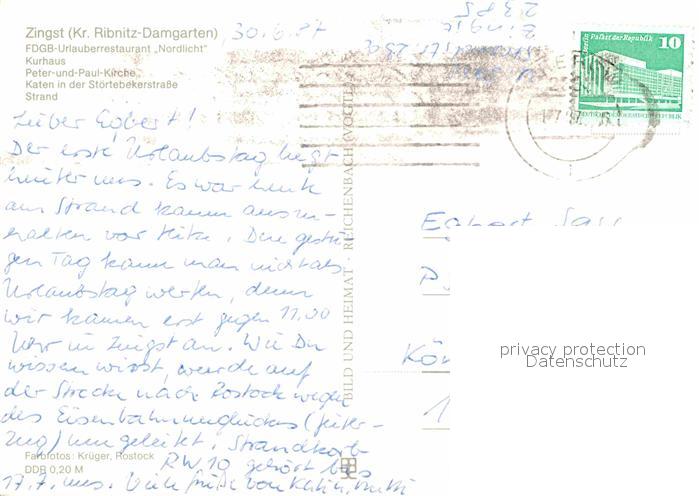 Zingst (Kr. Ribnitz-Damgarten)
FDGB-Urlauberrestaurant „Nordlicht"
Kurhaus
Peter-und-Paul-Kirche
Katen in der Störtebekerstraße
Strand
30.6.87
2385
Zingst
10
Berlin Palast der Republik
DEUTSCHE DEMOKRATISCHE REPUBLIK
Lieber Egbert!
Der erste Urlaubstag liegt
hinter uns. Es war heute
am Strand kaum auszu-
halten vor Hitze. Den gestri-
gen Tag kann man nicht als
Urlaubstag werten, denn
wir kamen erst gegen 11.00
Uhr in Zingst an. Wie Du
wissen wirst, wurde auf
der Strecke nach Rostock wegen
des Eisenbahnunglückes (Güter-
zug) umgeleitet. Strandkorb
RW 10 gehört bis
17.7. uns. Viele Grüße von Katrin, Mutti
Egbert
Farbfotos: Krüger, Rostock
DDR 0,20 M
BILD UND HEIMAT REICHENBACH (VOGTL)
privacy protection
Datenschutz